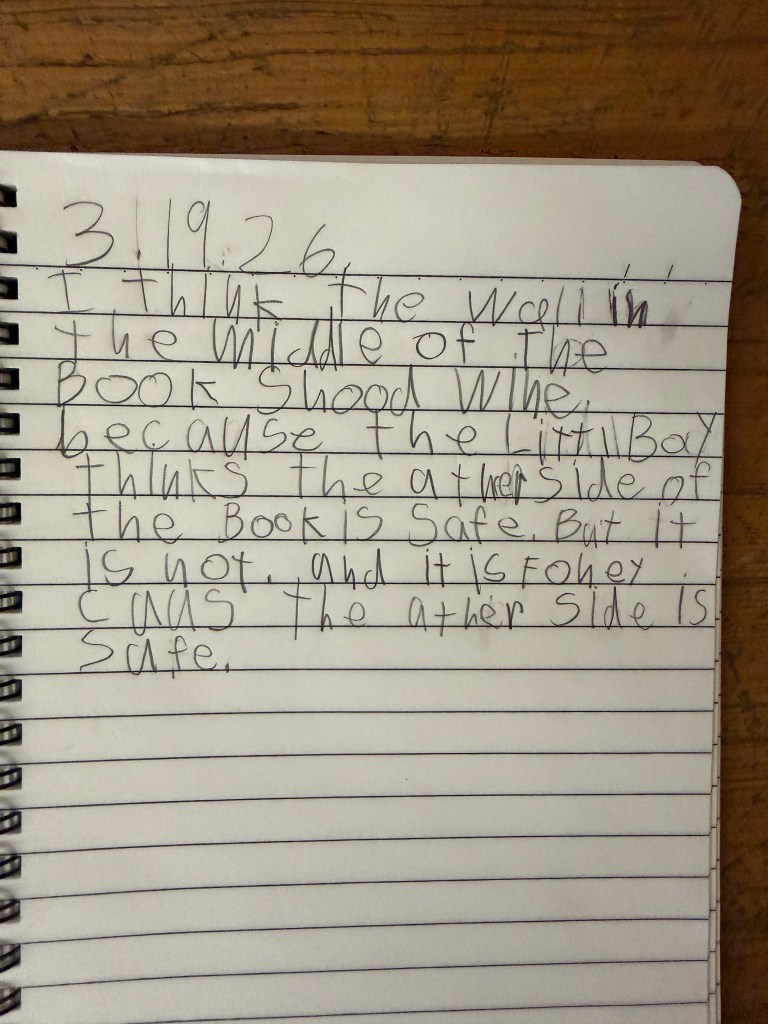 3.19.26.
I think the wall in
the middle of the
Book Shood Wihe.
because the Littil Boy
thinks the ather side of
the Book is Safe. But it
is not. and it is Foney
Cuus the ather side is
Safe.